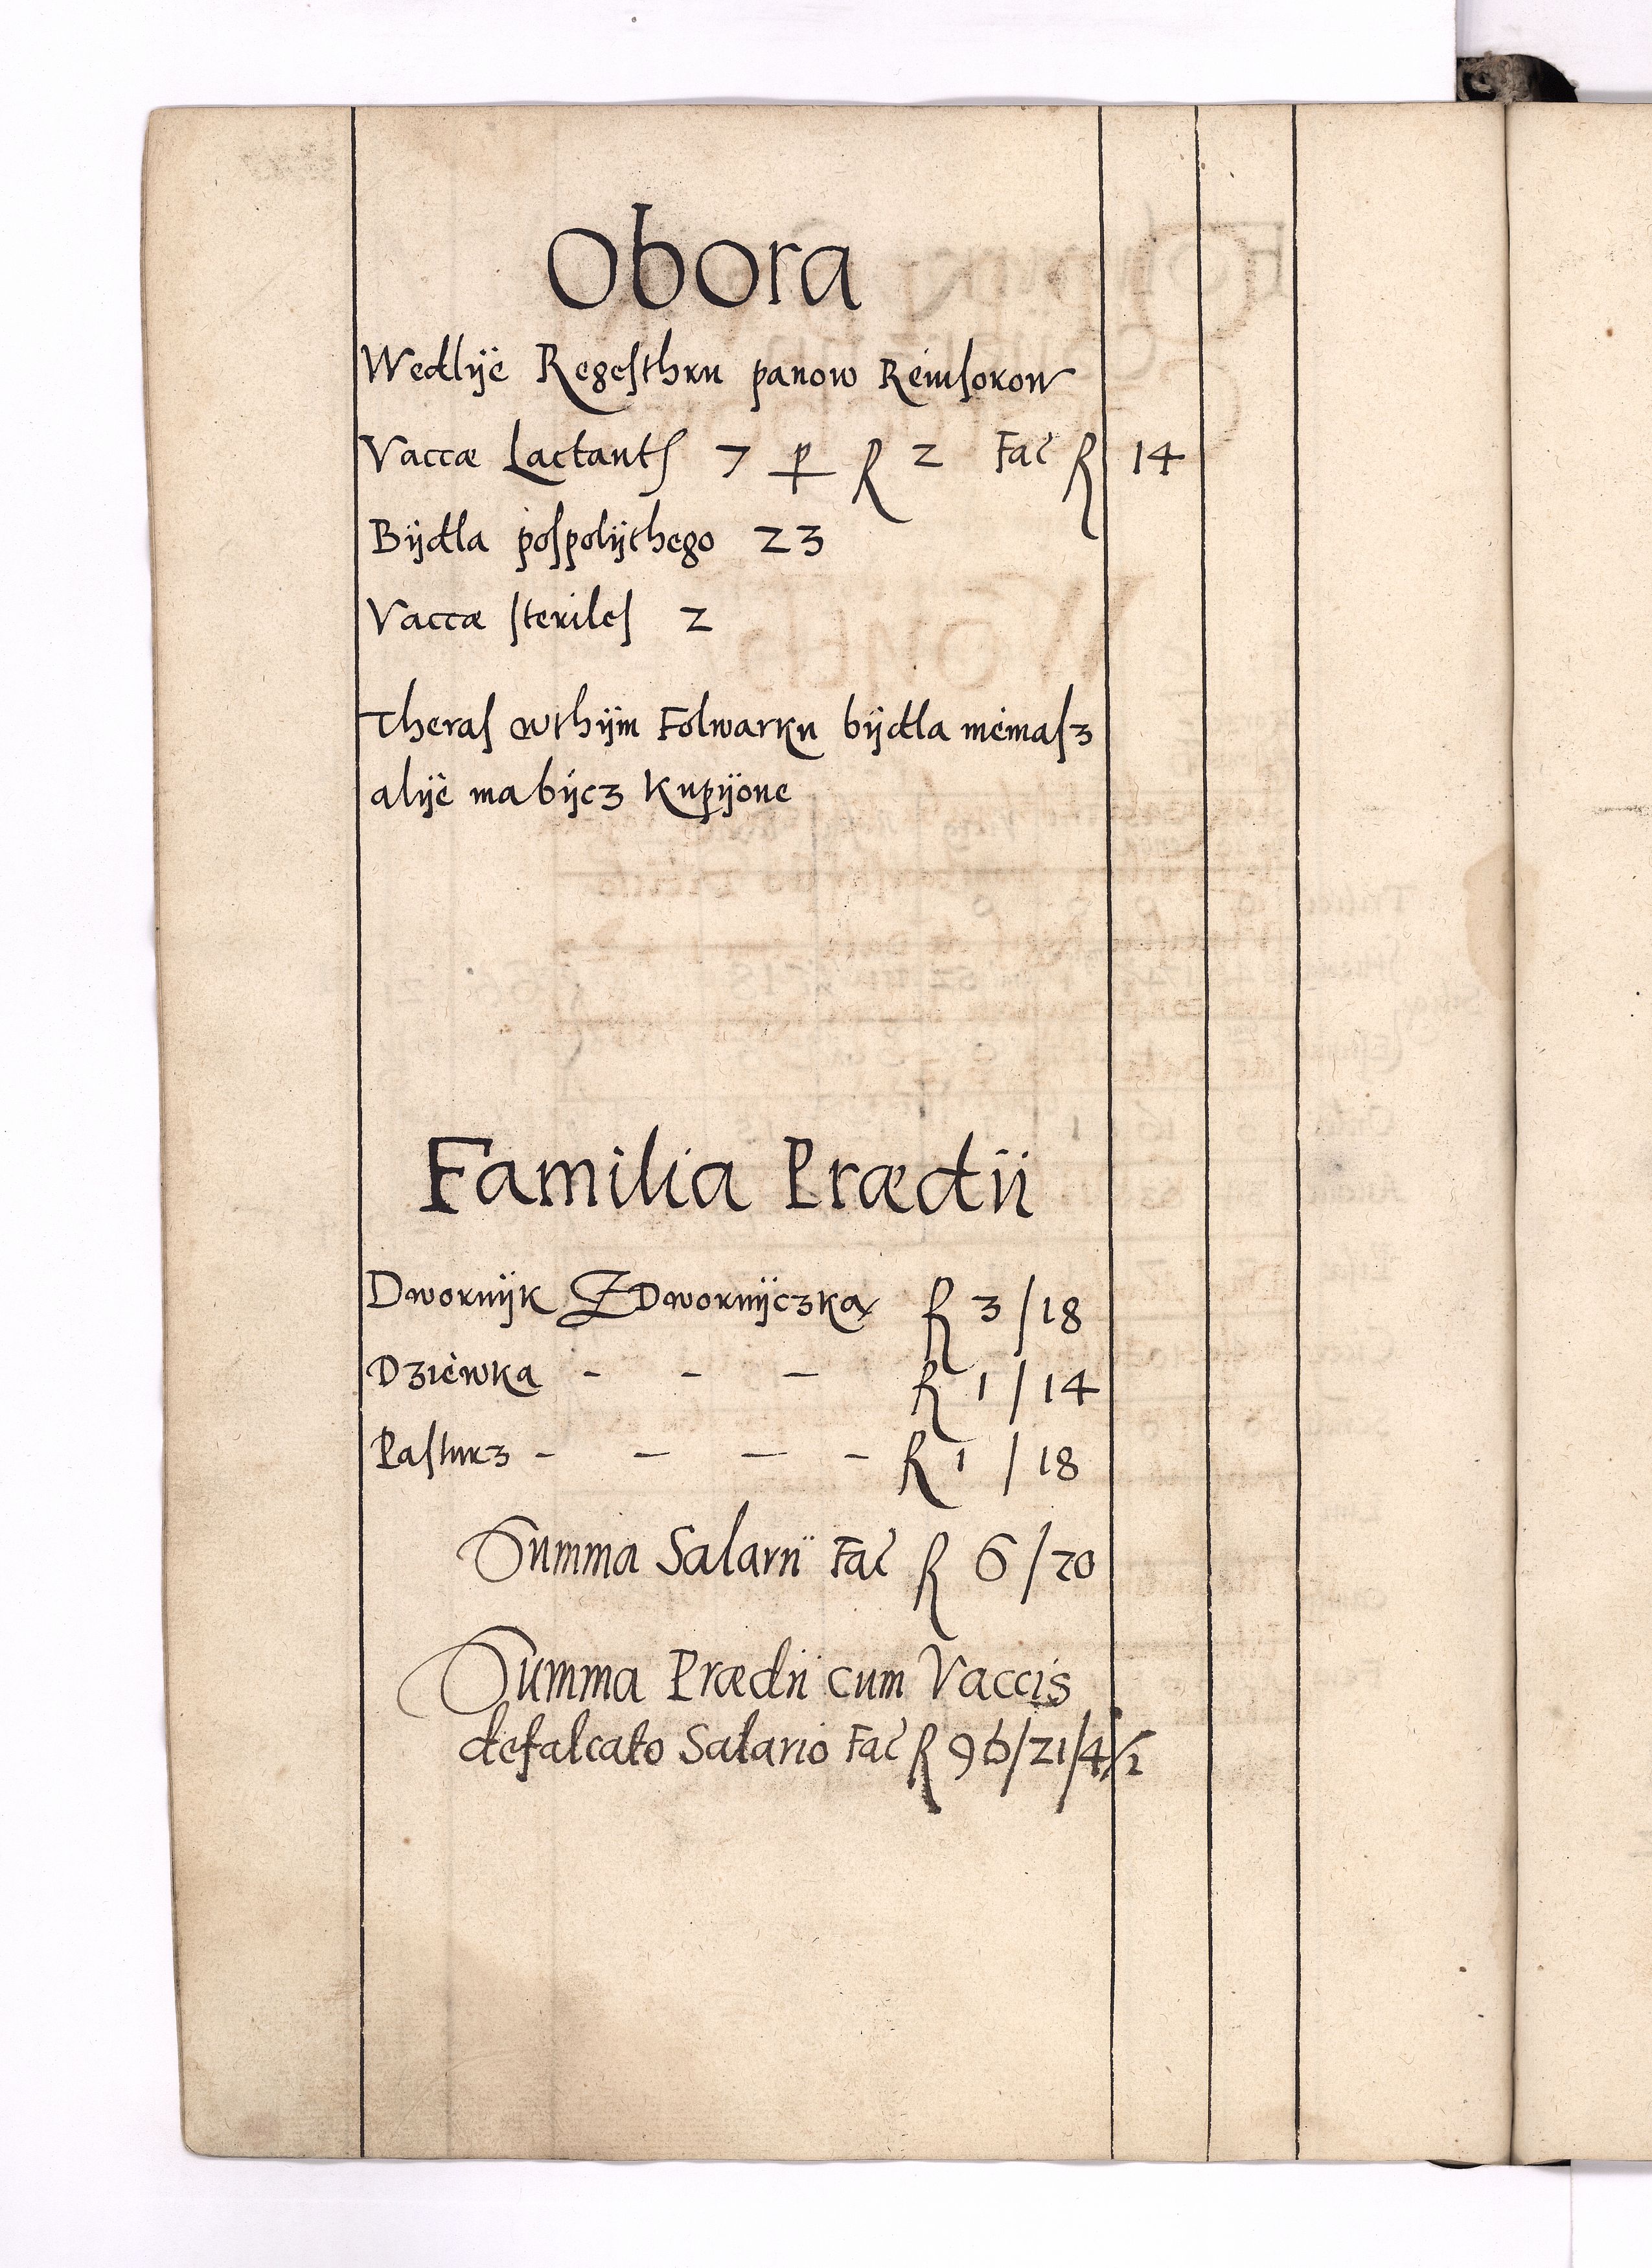 Obora
Wedlÿe Regesthru panow Reiuisorow
Vaccæ Lactants 7 p R 2 Fac R 14
Bÿdla pospolÿthego 23
Vaccæ steriles 2
Theras wthÿm Folwarku bÿdla niemasz
alÿe ma bÿcz Kupÿone
Familia Prædii
Dwornÿk Z Dwornÿczka R 3/18
Dziewka - - - R 1/14
Pasturz - - - - R 1/18
Summa Salarii Fac R 6/20
Summa Prædii cum Vaccis
defalcato Salario Fac R 96/21/4 1/2